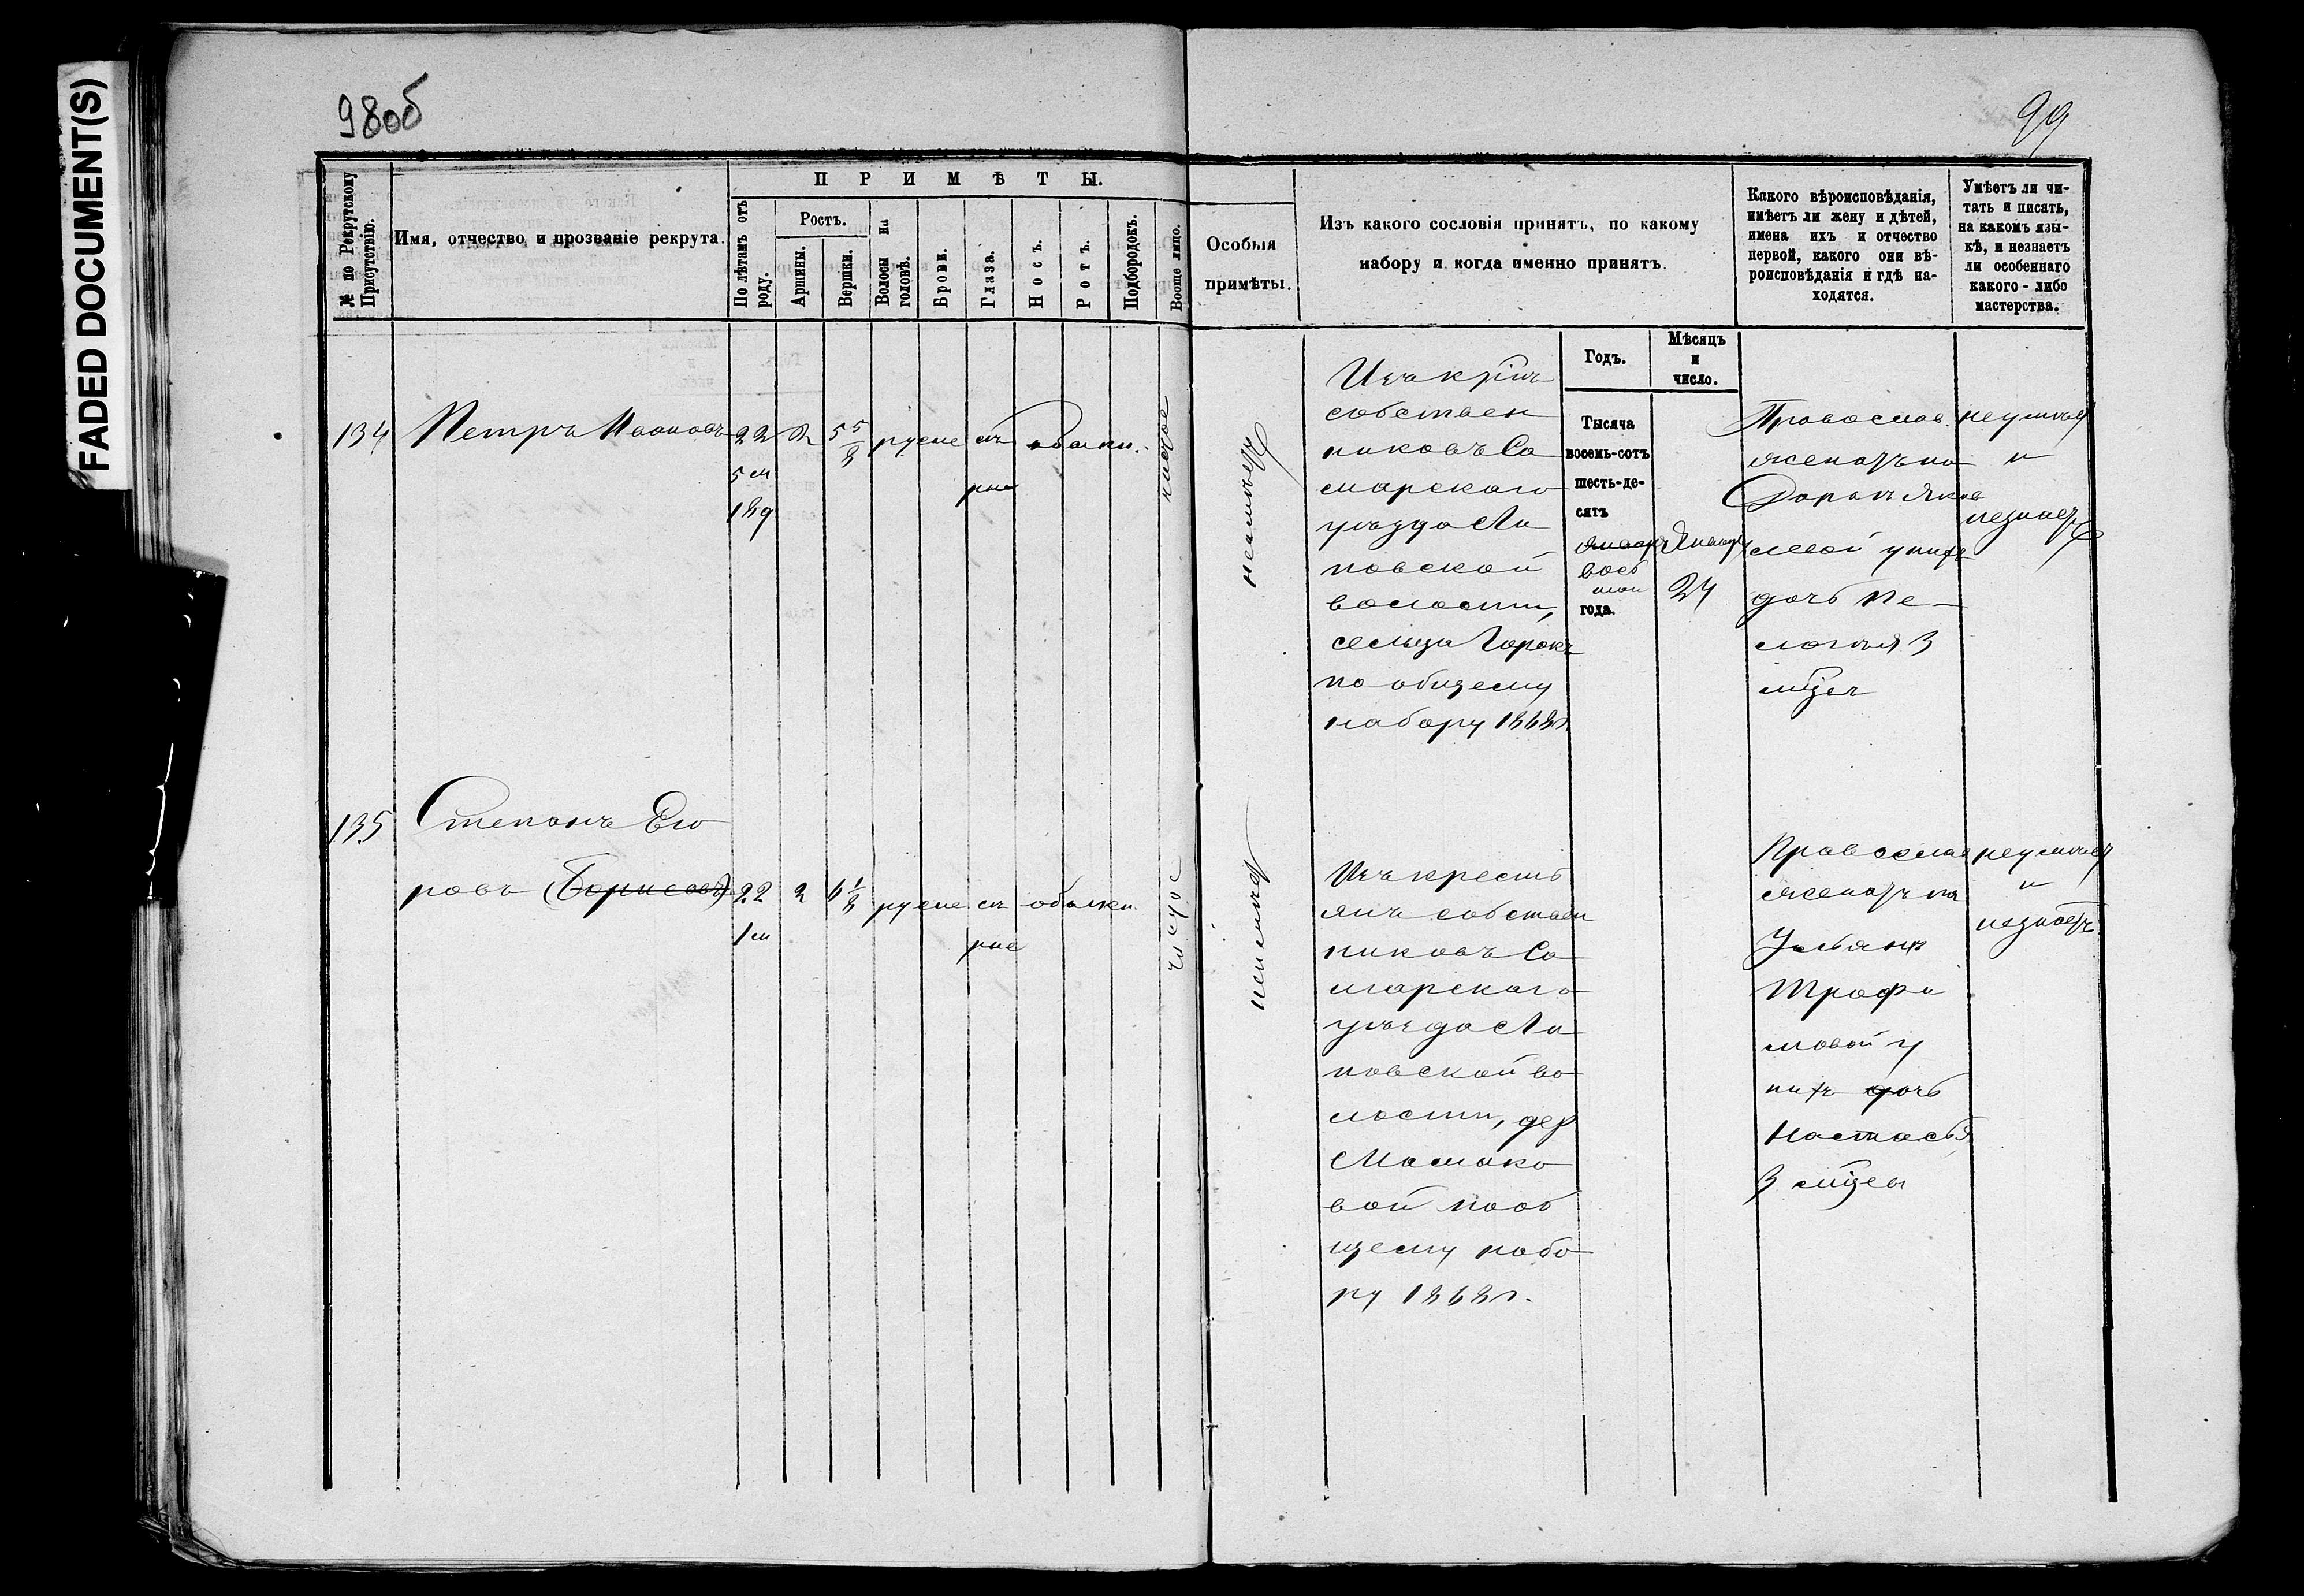 FADED DOCUMENT(S)
98об
99
№ по Рекрутскому Присутствію.
Имя, отчество и прозваніе рекрута.
ПРИМѢТЫ.
По лѣтамъ отъ роду.
Ростъ.
Аршины.
Вершки.
Волосы на головѣ.
Брови.
Глаза.
Носъ.
Ротъ.
Подбородокъ.
Вообще лицо.
Особыя
примѣты.
Изъ какого сословія принятъ, по какому
набору и когда именно принятъ.
Какого вѣроисповѣданія,
имѣетъ ли жену и дѣтей,
имена ихъ и отчество
первой, какого они вѣ-
роисповѣданія и гдѣ на-
ходятся.
Умѣетъ ли чи-
тать и писать,
на какомъ язы-
кѣ, и незнаетъ
ли особеннаго
какого-либо
мастерства.
Годъ.
Мѣсяцъ
и
число.
134
Петръ Ивановъ
22
5 м
189
2
5 5/8
русые
сѣ
рые
обыкн.
чистое
неимѣетъ
Изъ кр҃нъ
собствен
никовъ Са
марскаго
уѣзда Ли
повской
волости,
сельца Горокъ
по общему
набору 1868г.
Тысяча
восемь-сотъ
шесть-де-
сятъ
вось
мои
года.
Январ
24
Православ.
женатъ на
Дарьѣ Яков
левой у нихъ
дочь Пе-
лагѣя 3
мѣся
неумѣетъ
и
незнаетъ
135
Степанъ Его
ровъ (Борисовъ)
22
1 м
2
6 1/8
русые
сѣ
рые
обыкн
чистое
неимѣетъ
Изъ кресть
янъ собствен
никовъ Са
марскаго
уѣзда Ли
повской во
лости, дер
Маmако
вой пооб
щему набо
ру 1868г.
Православ
женатъ на
Ульянѣ
Трофи
мовой у
нихъ дочь
Настасья
3 мѣся
неумѣетъ
и
незнаетъ